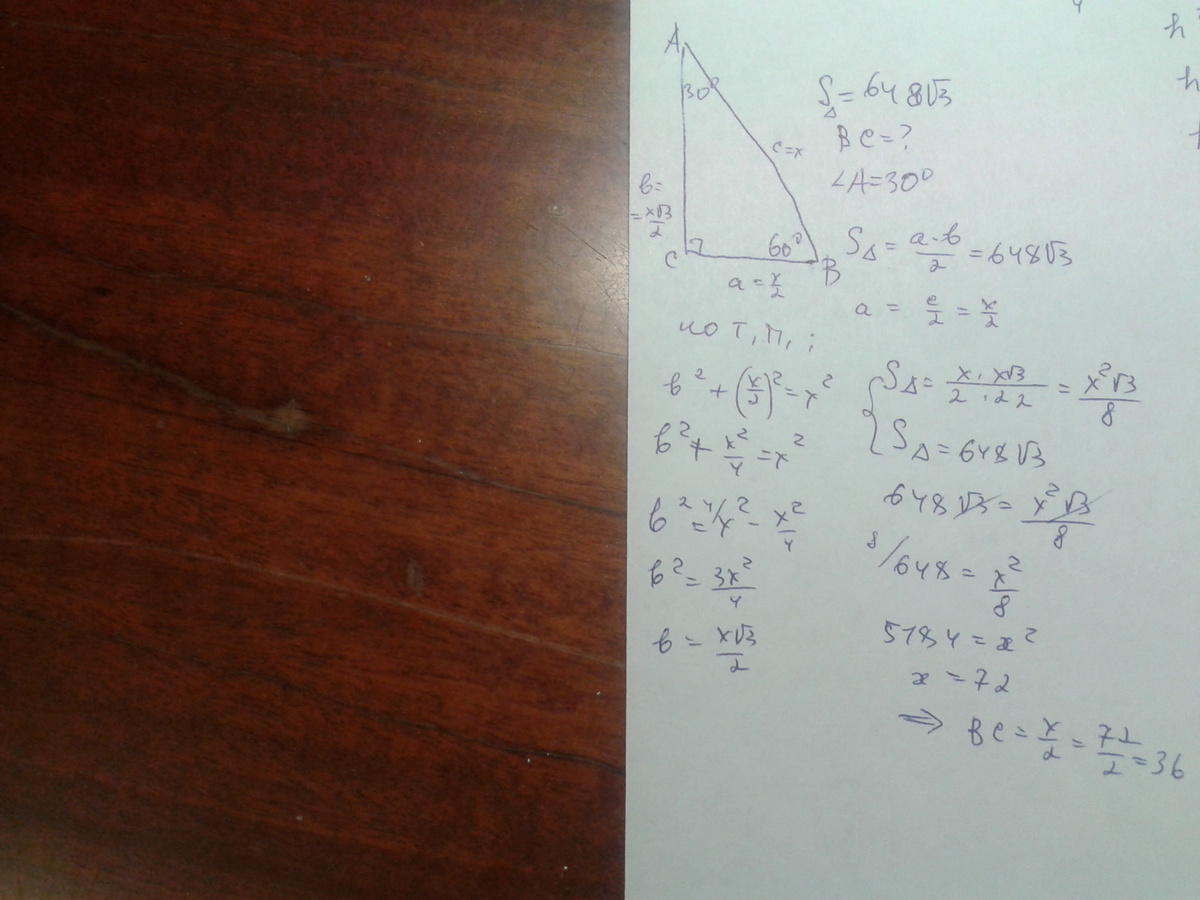 A
30°
c=x
b=
=x√3/2
C
60°
B
a = x/2
S△ = 648√3
BC = ?
∠A=30°
S△ = a·b/2 = 648√3
a = c/2 = x/2
по т, п, ;
b² + (x/2)² = x²
b² + x²/4 = x²
b² = 4/x² - x²/4
b² = 3x²/4
b = x√3/2
S△ = x · x√3/2 · 2 2 = x²√3/8
S△ = 648√3
648√3 = x²√3/8
8/648 = x²/8
5184 = x²
x = 72
⇒ BC = x/2 = 72/2 = 36
h
h